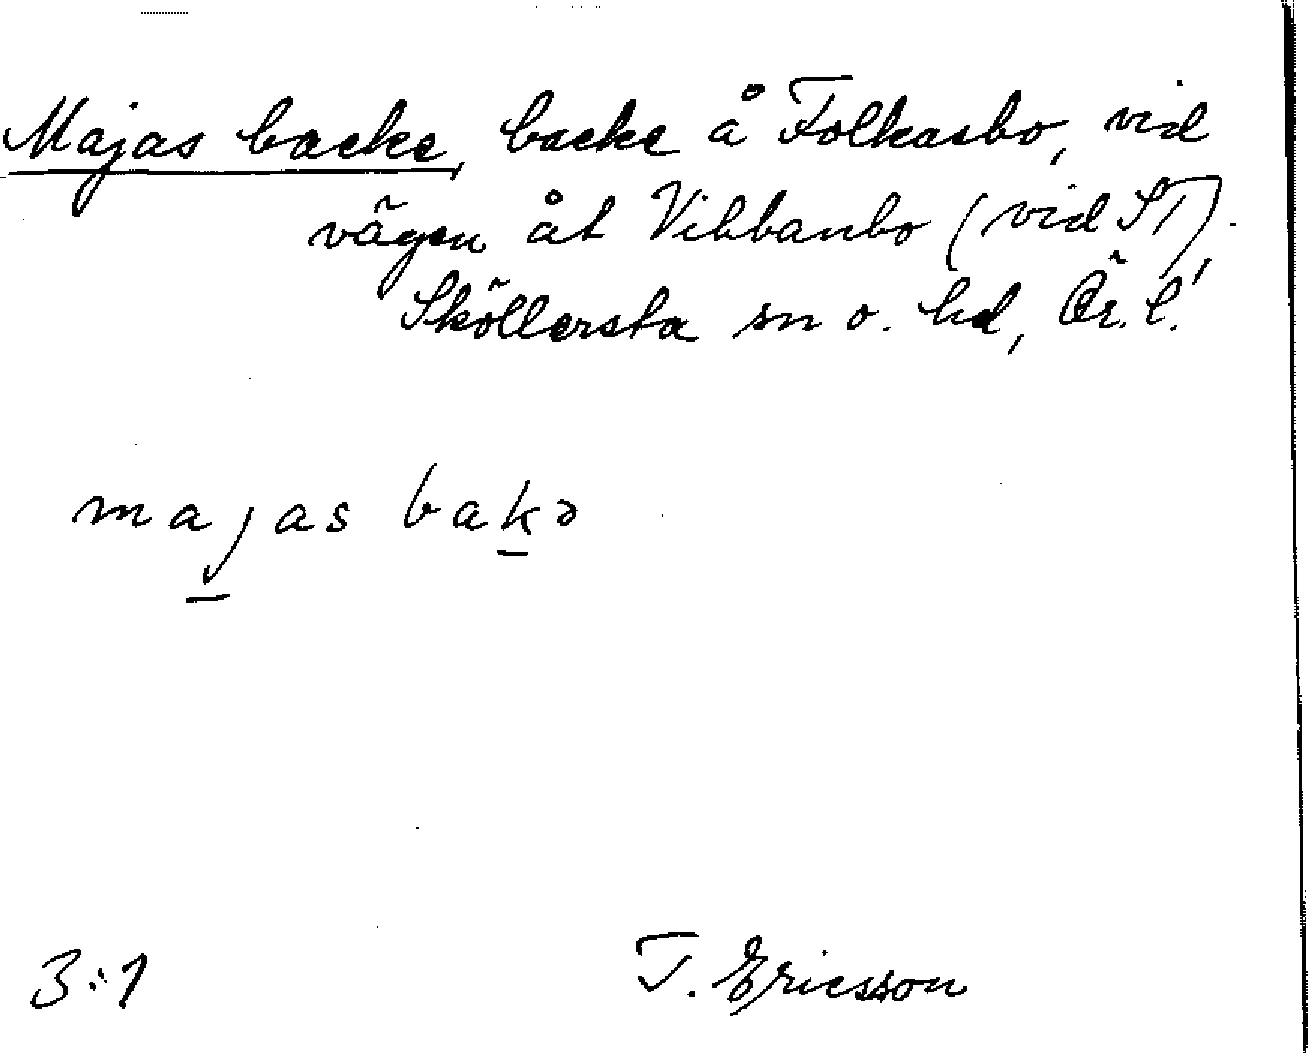 Majas backe, backe å Folkasbo, vid
vägen åt Vibbanbo (vid ST).
Sköllersta sn o. hd, Ör. l.
majas bakə
3:1
T. Ericsson